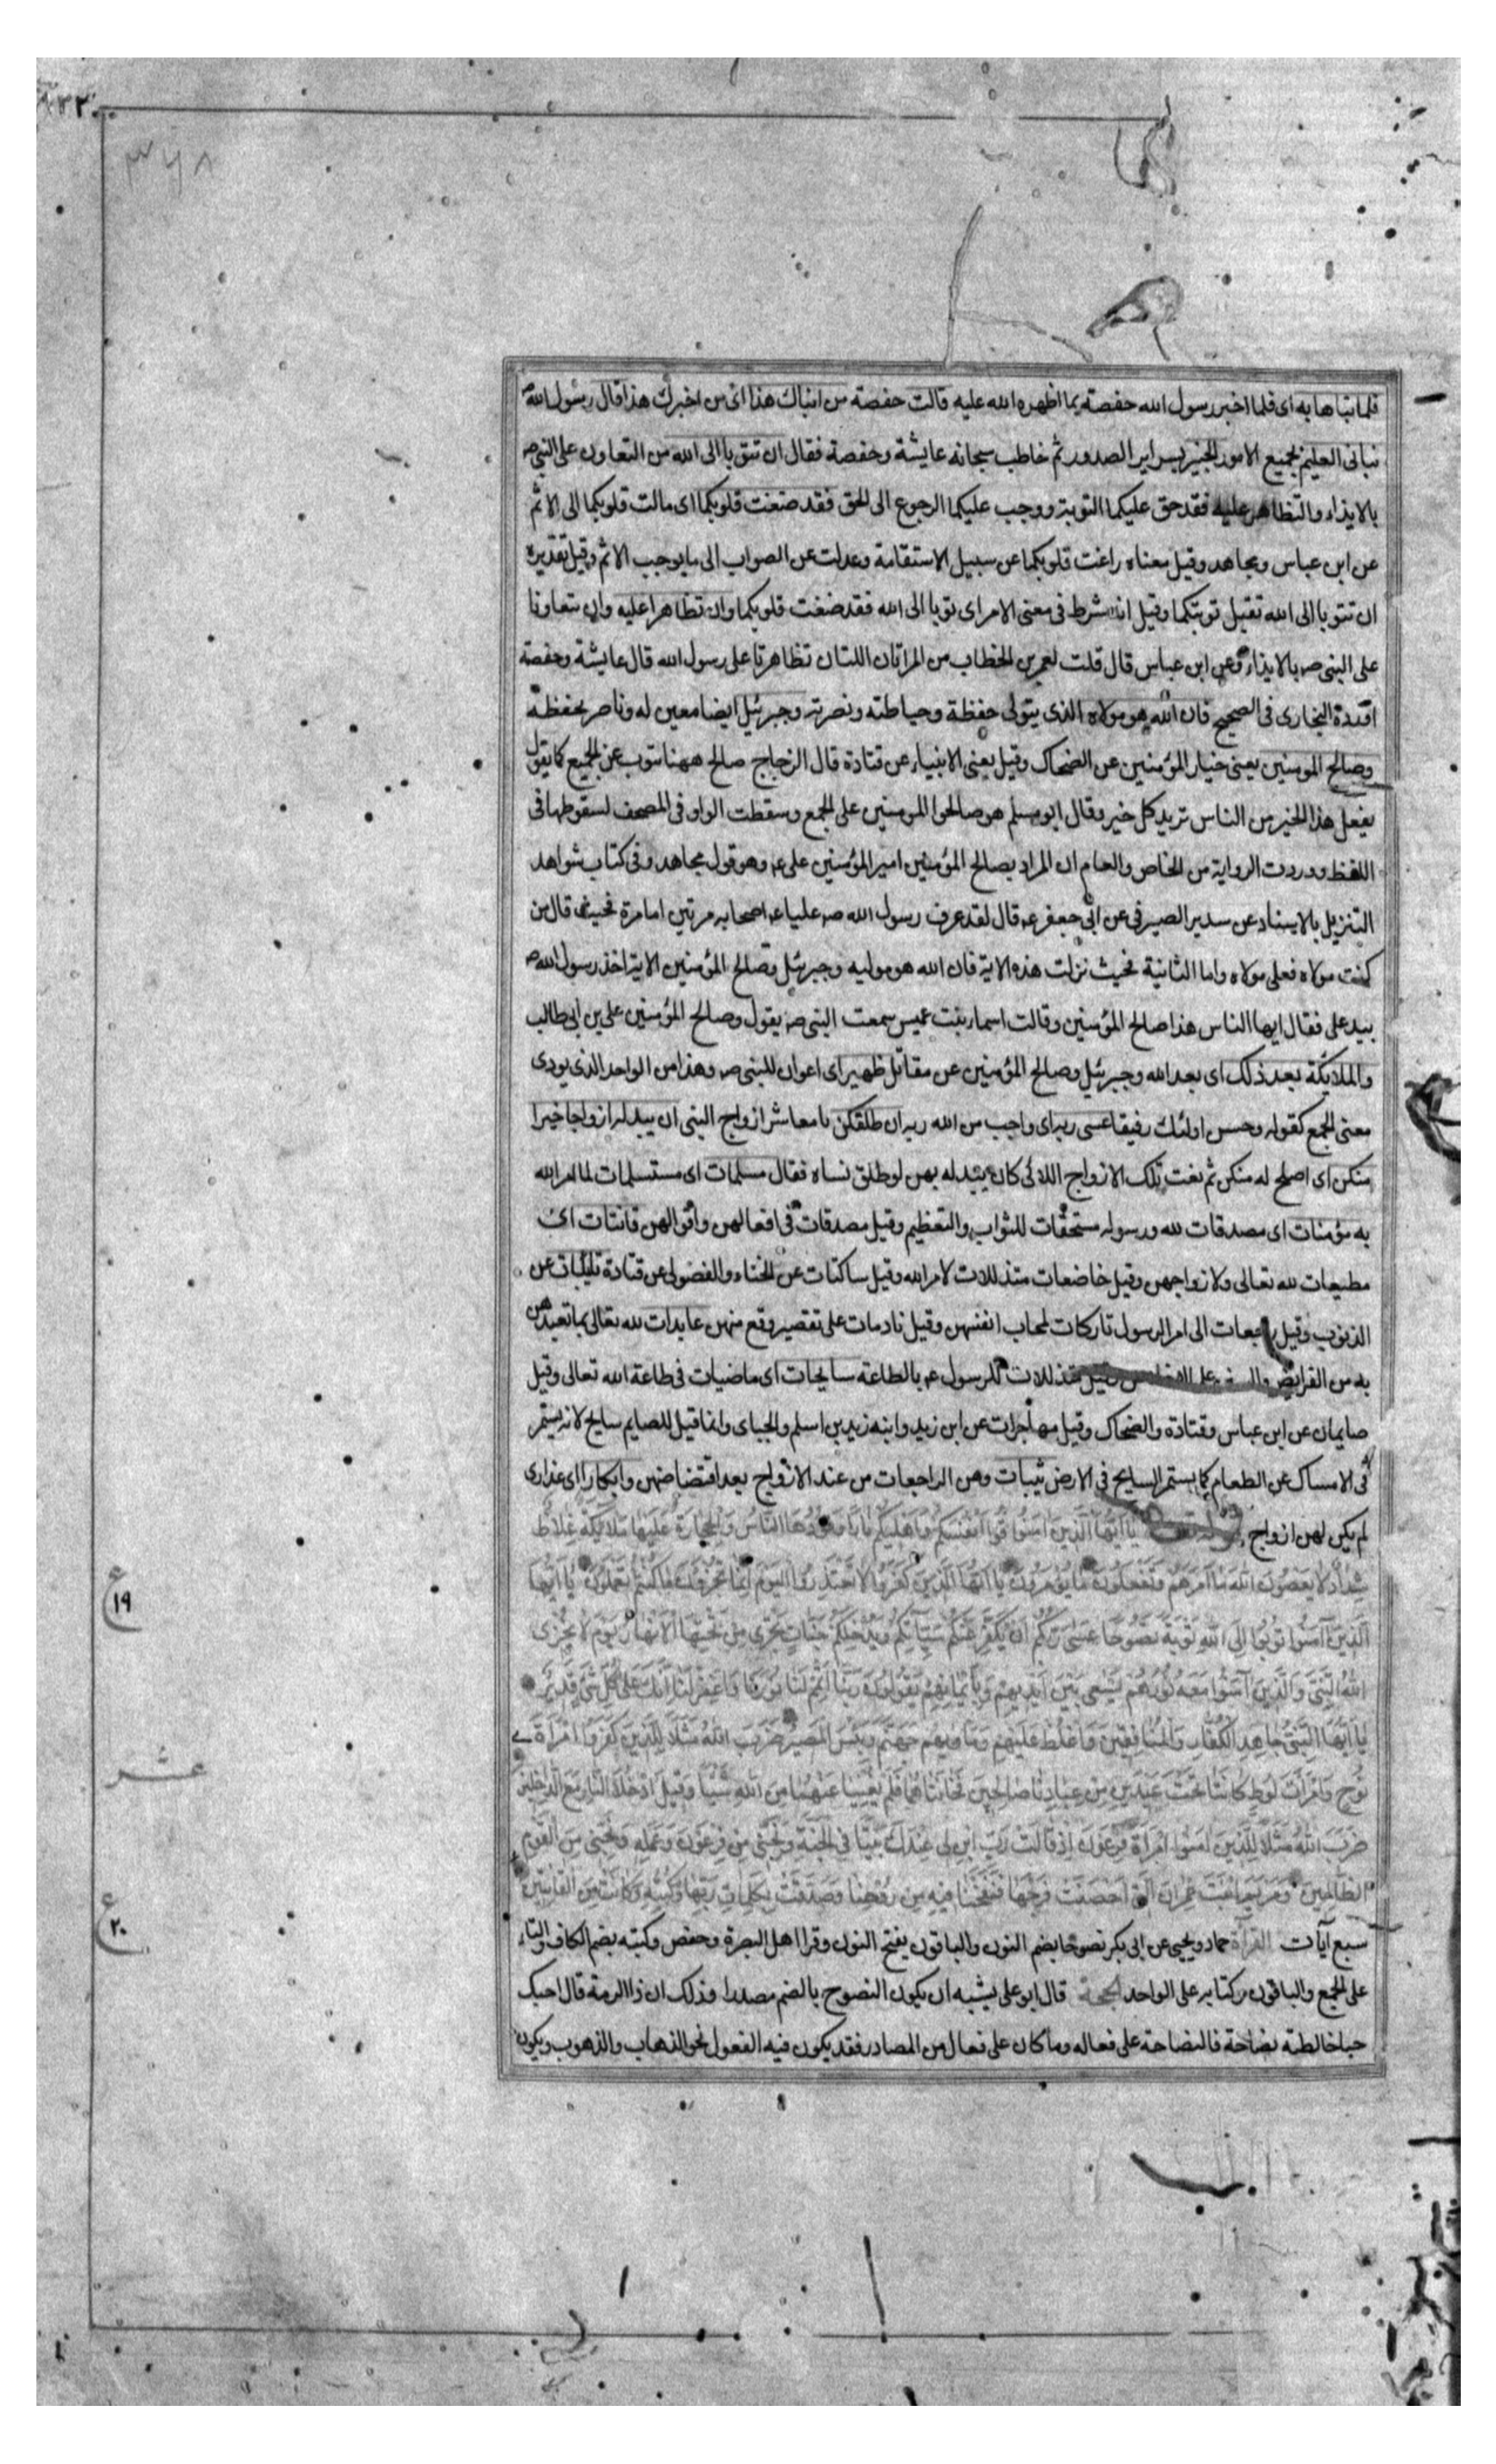 فلما نباها به اى فلما اخبر رسول الله حفصة بما اظهره الله عليه قالت حفصة من انباك هذا اى من اخبرك هذا قال رسول الله ص
نبانى العليم بجميع الامور الخبير بسراير الصدور ثم خاطب سبحانه عايشة وحفصة فقال ان تتوبا الى الله من التعاون على النبى ص
بالايذاء والتظاهر عليه فقد حق عليكما التوبة ووجب عليكما الرجوع الى الحق فقد صغت قلوبكما اى مالت قلوبكما الى الاثم
عن ابن عباس ومجاهد وقيل معناه زاغت قلوبكما عن سبيل الاستقامة وعدلت عن الصواب الى ما يوجب الاثم وقيل تقديره
ان تتوبا الى الله تقبل توبتكما وقيل انه شرط فى معنى الامر اى توبا الى الله فقد صغت قلوبكما وان تظاهرا عليه وان تتعاونا
على النبى ص بالايذاء وعن ابن عباس قال قلت لعمر بن الخطاب من المراتان اللتان تظاهرتا على رسول الله قال عايشة وحفصة
البخارى فى الصحيح فان الله هو مولاه الذى يتولى حفظة وحياطته ونصرته وجبرئيل ايضا معين له وناصر بحفظة
وصالح المومنين يعنى خيار المؤمنين عن الضحاك وقيل يعنى الانبياء عن قتادة قال الزجاج صالح ههنا ينوب عن الجميع كما يقول
يفعل هذا الخير من الناس تريد كل خير وقال ابو مسلم هو صالحوا المومنين على الجمع وسقطت الواو فى المصحف لسقوطها فى
اللفظ ووردت الرواية من الخاص والعام ان المراد بصالح المؤمنين امير المؤمنين على ع وهو قول مجاهد وفى كتاب شواهد
التنزيل بالاسناد عن سدير الصيرفى عن ابى جعفر ع قال لقد عرف رسول الله ص عليا ع اصحابه مرتين اما مرة فحيث قال من
كنت مولاه فعلى مولاه واما الثانية فحيث نزلت هذه الاية فان الله هو موليه وجبرئيل وصالح المؤمنين الاية اخذ رسول الله ص
بيد على فقال ايها الناس هذا صالح المؤمنين وقالت اسماء بنت عميس سمعت النبى ص يقول وصالح المؤمنين على بن ابى طالب
والملايكة بعد ذلك اى بعد الله وجبرئيل وصالح المؤمنين عن مقاتل ظهير اى اعوان للنبى ص وهذا من الواحد الذى يودى
معنى الجمع كقوله وحسن اولئك رفيقا عسى ربه اى واجب من الله ربه ان طلقكن يا معاشر ازواج النبى ان يبدله ازواجا خيرا
منكن اى اصلح له منكن ثم نعت تلك الازواج اللائى كان يبدله بهن لو طلق نساه فقال مسلمات اى مستسلمات لما امر الله
به مؤمنات اى مصدقات لله ورسوله مستحقات للثواب والتعظيم وقيل مصدقات فى افعالهن واقوالهن قانتات اى
مطيعات لله تعالى ولازواجهن وقيل خاضعات متذللات لامر الله وقيل ساكتات عن الخناء والفضول عن قتادة تايبات عن
الذنوب وقيل راجعات الى امر الرسول تاركات لمحاب انفسهن وقيل نادمات على تقصير وقع منهن عابدات لله تعالى بما تعبدهن
به من الفرايض وقيل متذللات للرسول ع بالطاعة سايحات اى ماضيات فى طاعة الله تعالى وقيل
صايمات عن ابن عباس وقتادة والضحاك وقيل مهاجرات عن ابن زيد وابنه زيد بن اسلم والجباى وانما قيل للصايم سايح لانه يستمر
فى الامساك عن الطعام كما يستمر السايح فى الارض ثيبات وهن الراجعات من عند الازواج بعد افتضاضهن وابكارا اى عذارى
لم يكن لهن ازواج يَا اَيُّهَا الَّذِينَ اٰمَنُوا قُوا اَنْفُسَكُمْ وَاَهْلِيكُمْ نَارًا وَقُودُهَا النَّاسُ وَالْحِجَارَةُ عَلَيْهَا مَلَايِكَةٌ غِلَاظٌ
شِدَادٌ لَا يَعْصُونَ اللَّهَ مَا اَمَرَهُمْ وَيَفْعَلُونَ مَا يُؤْمَرُونَ يَا اَيُّهَا الَّذِينَ كَفَرُوا لَا تَعْتَذِرُوا الْيَوْمَ اِنَّمَا تُجْزَوْنَ مَا كُنْتُمْ تَعْمَلُونَ يَا اَيُّهَا
الَّذِينَ اٰمَنُوا تُوبُوا اِلَى اللَّهِ تَوْبَةً نَصُوحًا عَسَى رَبُّكُمْ اَنْ يُكَفِّرَ عَنْكُمْ سَيِّاٰتِكُمْ وَيُدْخِلَكُمْ جَنَّاتٍ تَجْرِي مِنْ تَحْتِهَا الْاَنْهَارُ يَوْمَ لَا يُخْزِى
اللَّهُ النَّبِيَّ وَالَّذِينَ اٰمَنُوا مَعَهُ نُورُهُمْ يَسْعَى بَيْنَ اَيْدِيهِمْ وَبِاَيْمَانِهِمْ يَقُولُونَ رَبَّنَا اَتْمِمْ لَنَا نُورَنَا وَاغْفِرْ لَنَا اِنَّكَ عَلَى كُلِّ شَيْءٍ قَدِيرٌ
يَا اَيُّهَا النَّبِيُّ جَاهِدِ الْكُفَّارَ وَالْمُنَافِقِينَ وَاغْلُظْ عَلَيْهِمْ وَمَاْوٰيهُمْ جَهَنَّمُ وَبِئْسَ الْمَصِيرُ ضَرَبَ اللَّهُ مَثَلًا لِلَّذِينَ كَفَرُوا امْرَاَةَ
نُوحٍ وَامْرَاَتَ لُوطٍ كَانَتَا تَحْتَ عَبْدَيْنِ مِنْ عِبَادِنَا صَالِحَيْنِ فَخَانَتَاهُمَا فَلَمْ يُغْنِيَا عَنْهُمَا مِنَ اللَّهِ شَيْئًا وَقِيلَ ادْخُلَا النَّارَ مَعَ الدَّاخِلِينَ
ضَرَبَ اللَّهُ مَثَلًا لِلَّذِينَ اٰمَنُوا امْرَاَةَ فِرْعَوْنَ اِذْ قَالَتْ رَبِّ ابْنِ لِي عِنْدَكَ بَيْتًا فِي الْجَنَّةِ وَنَجِّنِي مِنْ فِرْعَوْنَ وَعَمَلِهِ وَنَجِّنِي مِنَ الْقَوْمِ
الظَّالِمِينَ وَمَرْيَمَ ابْنَتَ عِمْرَانَ الَّتِي اَحْصَنَتْ فَرْجَهَا فَنَفَخْنَا فِيهِ مِنْ رُوحِنَا وَصَدَّقَتْ بِكَلِمَاتِ رَبِّهَا وَكُتُبِهِ وَكَانَتْ مِنَ الْقَانِتِينَ
سبع آيات القراة حماد ويحيى عن ابى بكر نصوحا بضم النون والباقون بفتح النون وقرا اهل البصرة وحفص وكتبه بضم الكاف والتاء
على الجمع والباقون وكتابه على الواحد الحجة قال ابو على يشبه ان يكون النصوح بالضم مصدرا وذلك ان ذا الرمة قال احبك
حبا خالطته نصاحة فالنصاحة على فعاله وما كان على فعال من المصادر فقد يكون فيه الفعول نحو الذهاب والذهوب ويكون
٣٦٨
ع
١٩
عشر
ع
٢٠